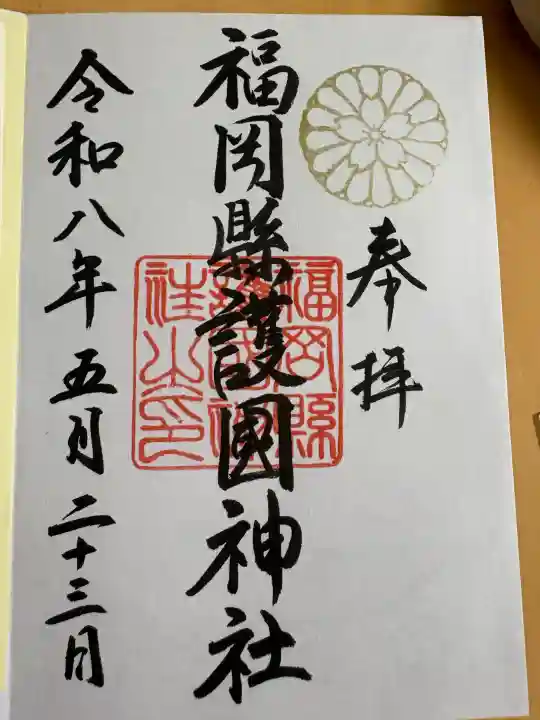 奉拝
福岡縣護國神社
福岡縣護國神社之印
令和八年五月二十三日